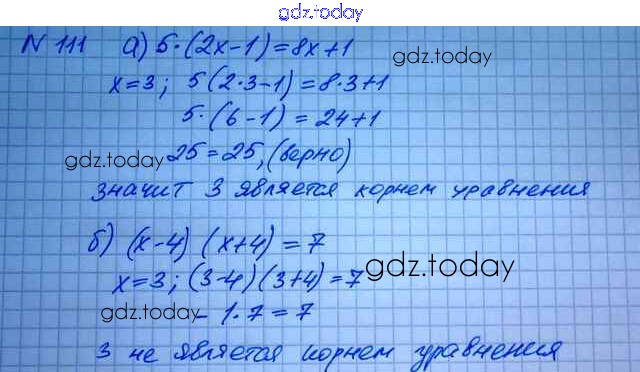 gdz.today
N 111 а) 5·(2x-1)=8x+1
gdz.today
x=3; 5(2·3-1)=8·3+1
5·(6-1)=24+1
gdz.today
25=25, (верно)
значит 3 является корнем уравнения
б) (x-4) (x+4)=7
gdz.today
x=3; (3-4)(3+4)=7
gdz.today
-1·7=7
3 не является корнем уравнения